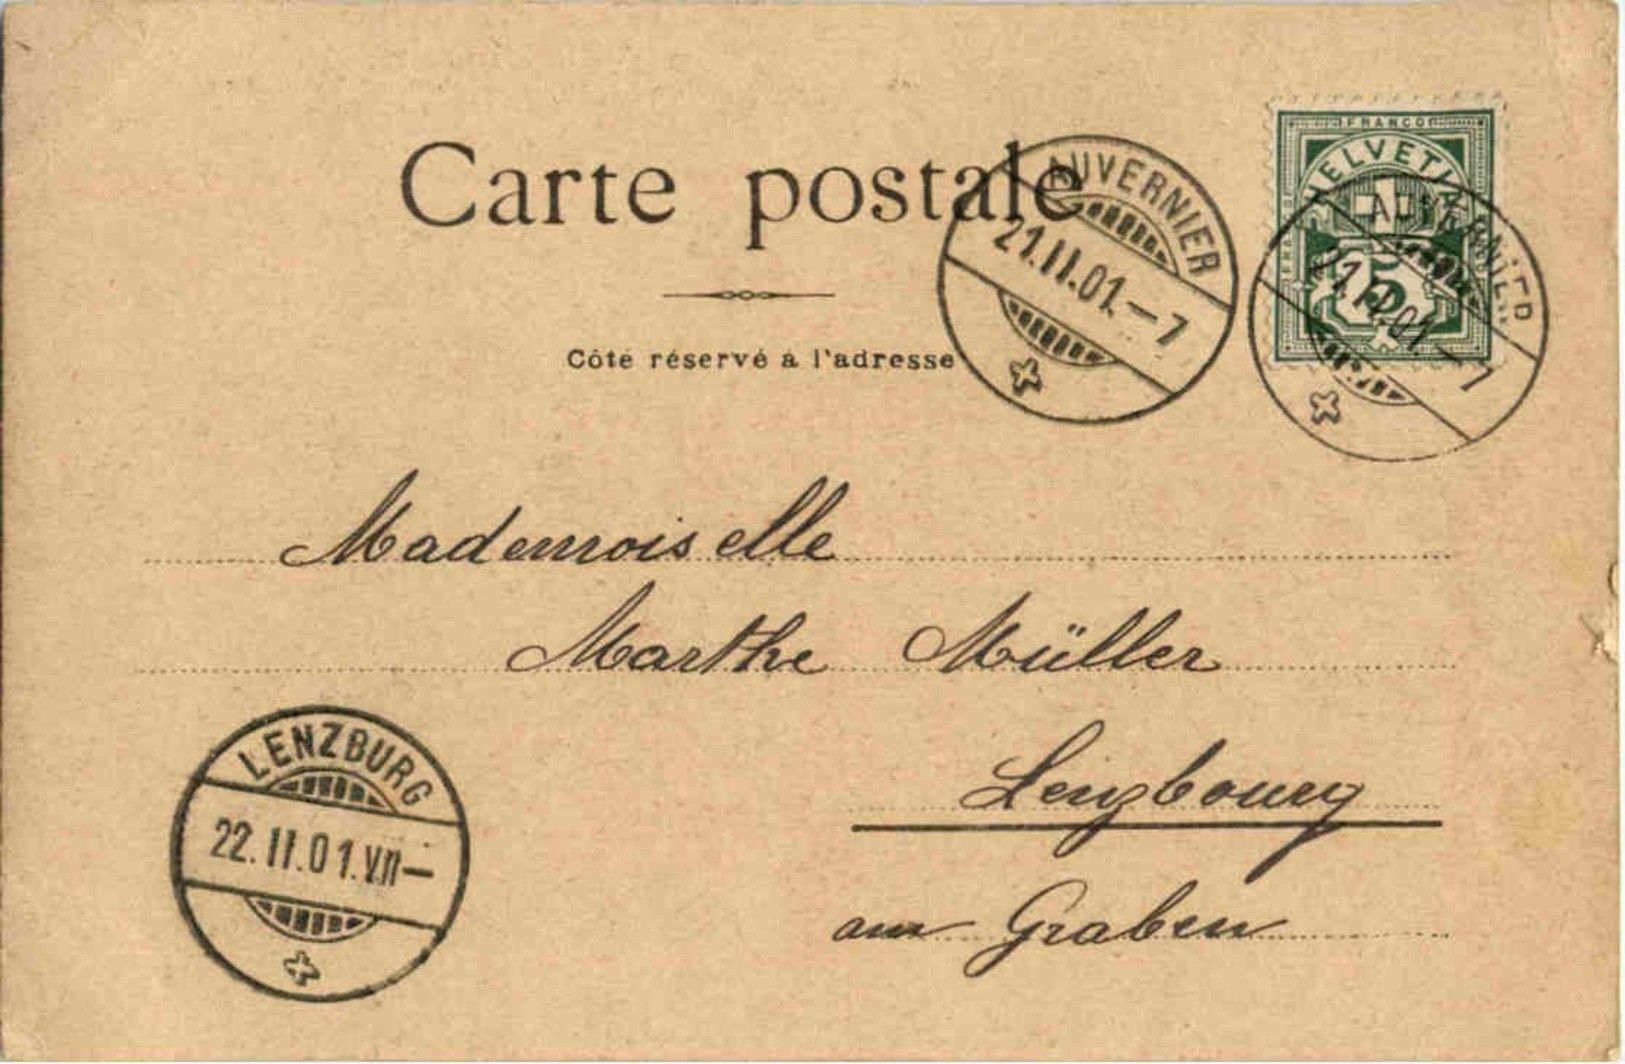 Carte postale
Côté réservé à l'adresse
AUVERNIER
21.II.01.–7
FRANCO
HELVETIA
5
AUVERNIER
21.II.01.–7
Mademoiselle
Marthe Müller
Lenzbourg
am Graben
LENZBURG
22.II.01.VII–